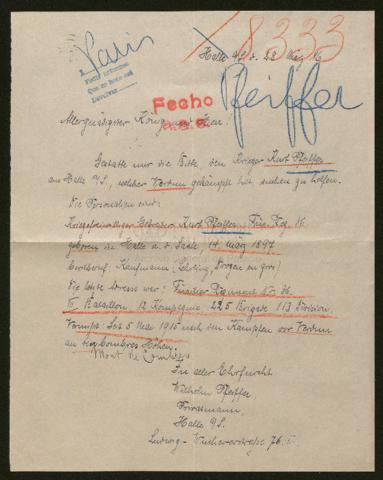 8333
Paris
Halle a/S d. 22. März 16
Pfeiffer
Fecho
Allergnädigster König und Herr!
Gestatte mir die Bitte, den Krieger Kurt Pfeiffer
aus Halle a/S, welcher Verdun gekämpft hat, suchen zu helfen.
Die Personalien sind:
Kriegsfreiwilliger Gefreiter Kurt Pfeiffer, Füs. Reg. 36
geboren in Halle a. d. Saale, 14. März 1897
Kaufmann
Die letzte Adresse war: Füsilier Regiment Nr. 36.
Bataillon 12 Kompagnie 225 Brigade 113 Division.
Vermißt: Seit 5 1915 nach den Kämpfen vor Verdun
an den Combres Höhen.
Mont de Combres
In aller Ehrfurcht
Wilhelm Pfeiffer,
Privatmann,
Halle a/S.
Ludwig-Wuchererstraße 76